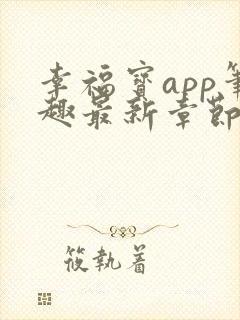 幸福宝app笔
趣最新章节
筱执着